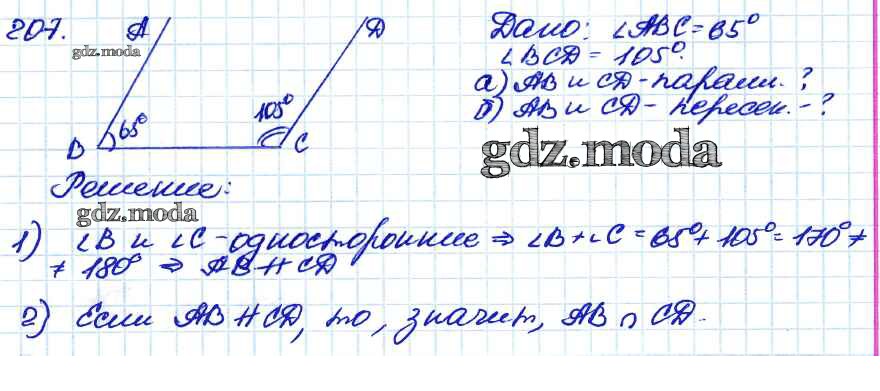 207.
A
D
gdz.moda
65°
105°
B
C
Дано: ∠ABC = 65°
∠BCD = 105°.
а) AB и CD - паралл. ?
б) AB и CD - пересек. - ?
gdz.moda
Решение:
gdz.moda
1) ∠B и ∠C - односторонние ⇒ ∠B + ∠C = 65° + 105° = 170° ≠
≠ 180° ⇒ AB ∦ CD
2) Если AB ∦ CD, то, значит, AB ∩ CD.